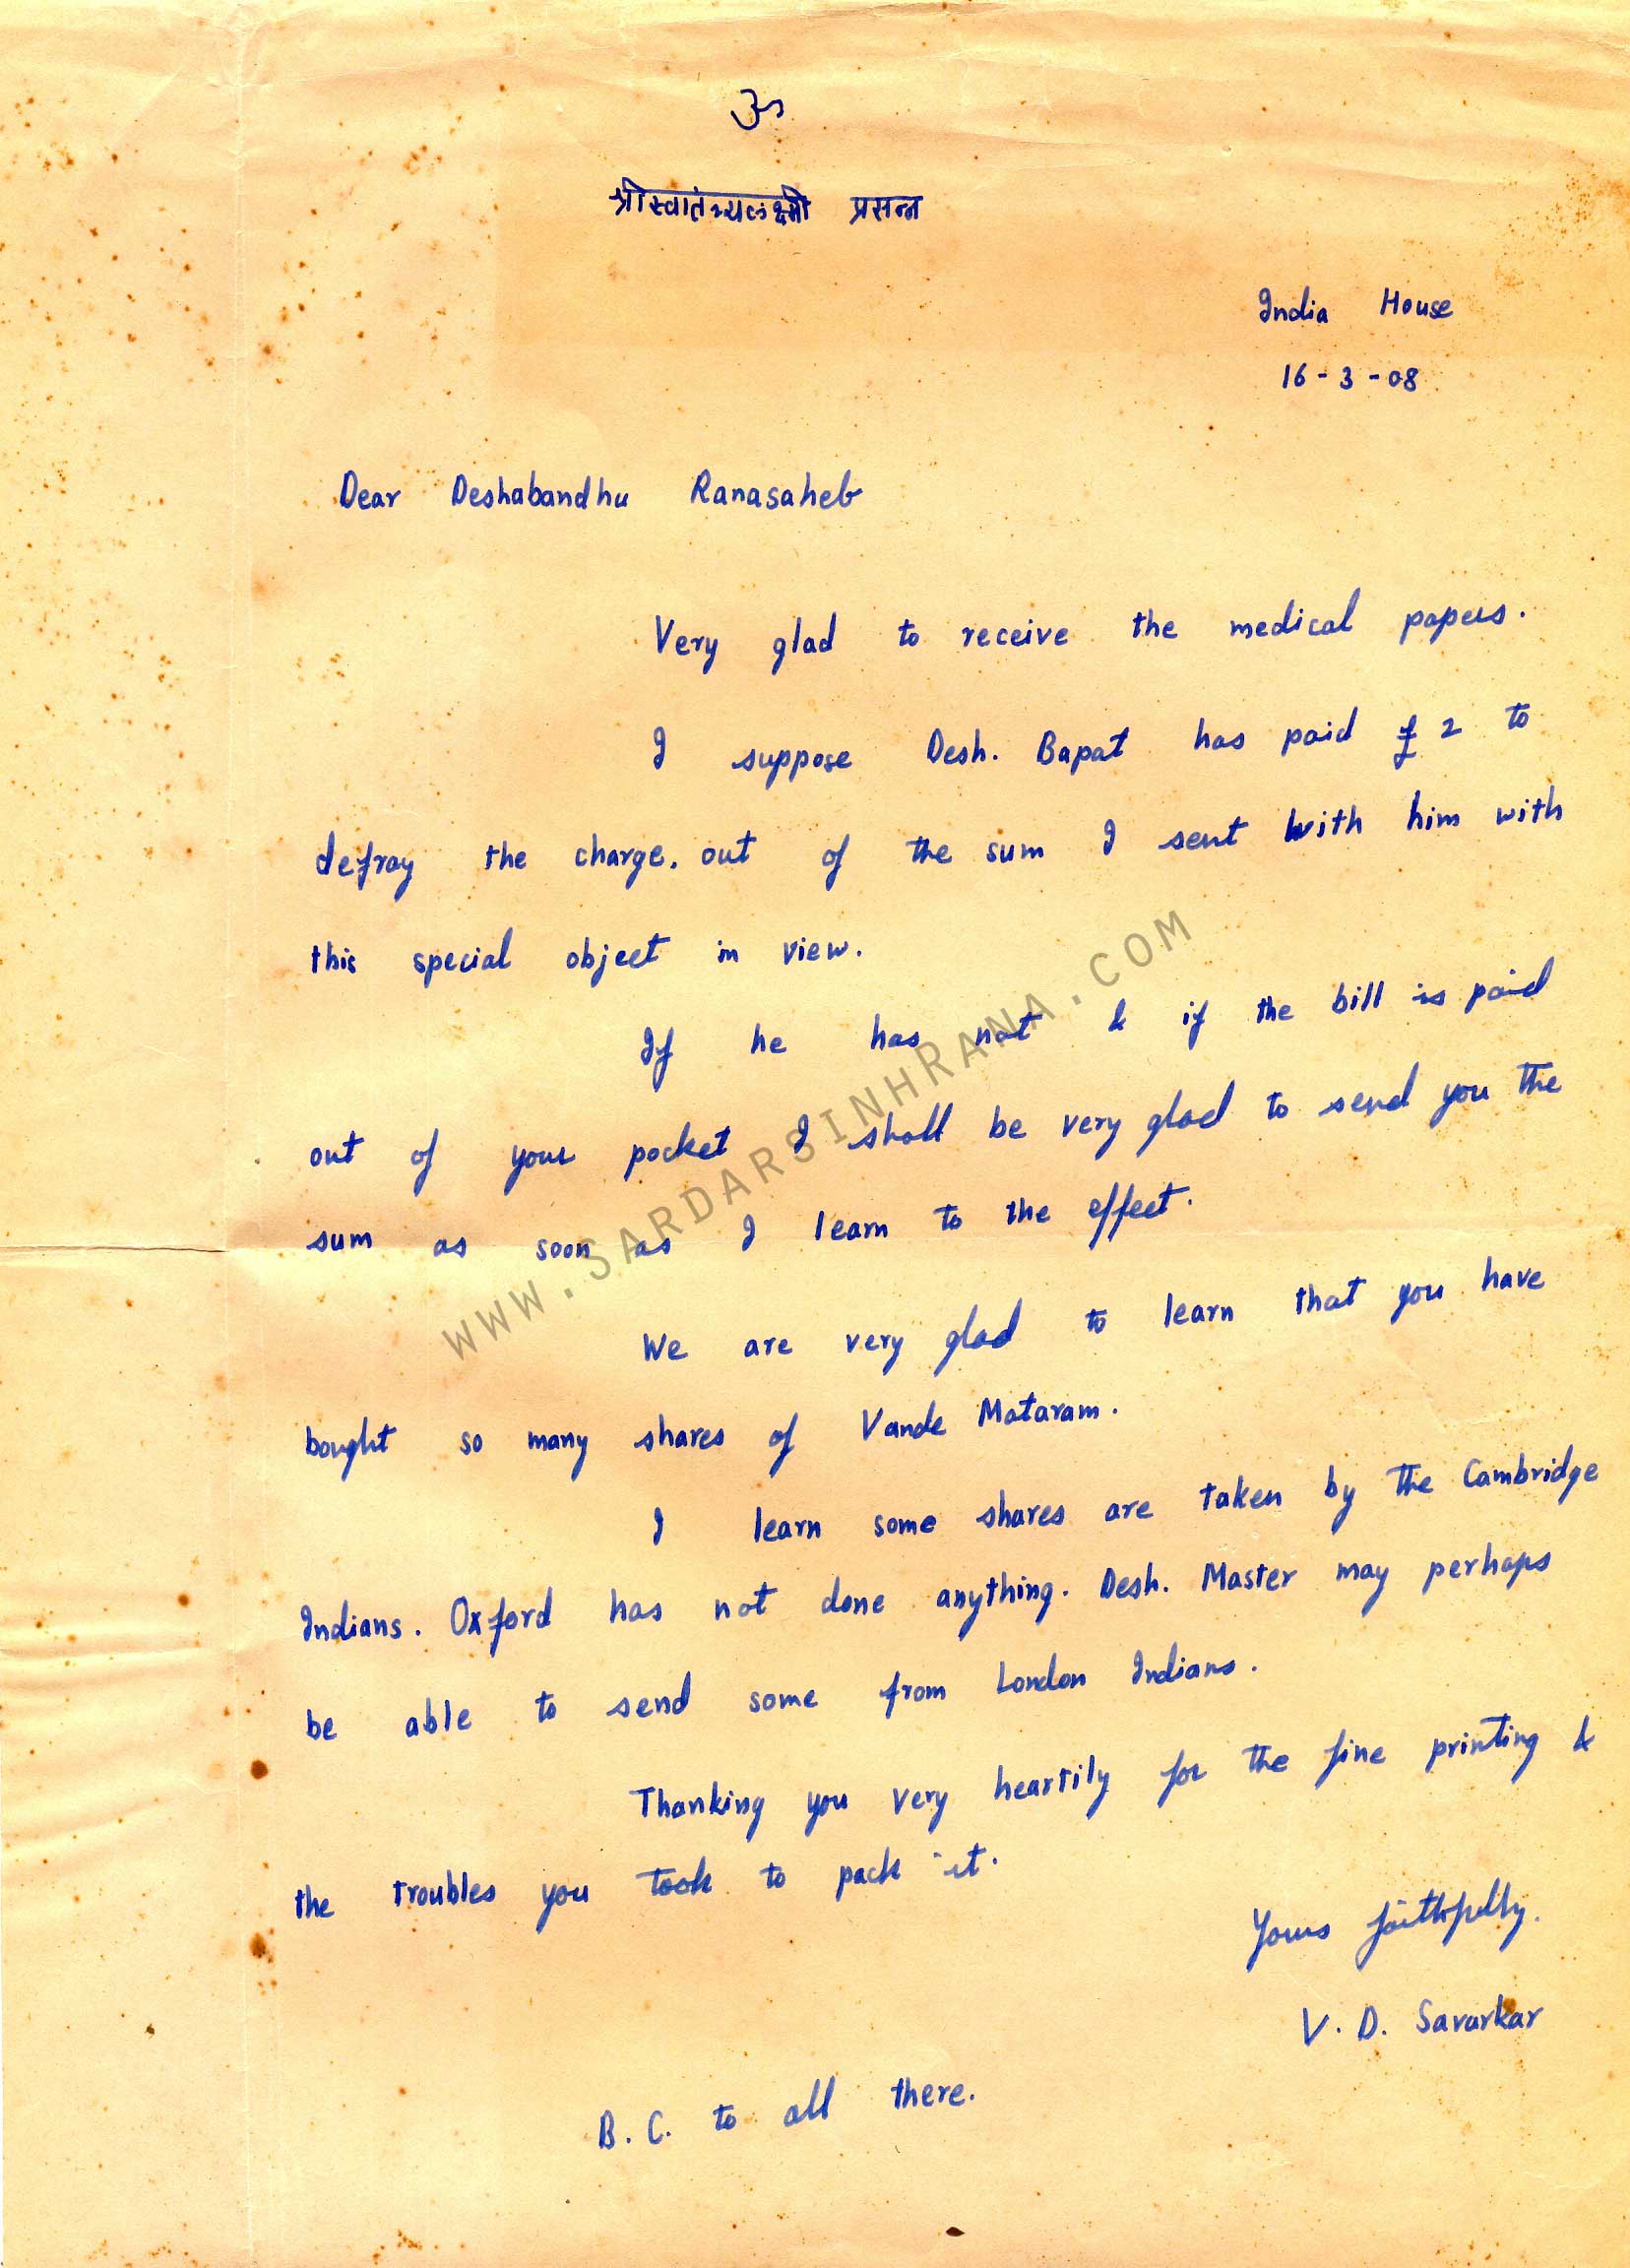 ॐ
श्रीस्वातंत्र्यलक्ष्मी प्रसन्न
India House
16-3-08
Dear Deshabandhu Ranasaheb
Very glad to receive the medical papers.
I suppose Desh. Bapat has paid £ 2 to
defray the charge, out of the sum I sent with him with
this special object in view.
If he has not & if the bill is paid
out of your pocket I shall be very glad to send you the
sum as soon as I learn to the effect.
We are very glad to learn that you have
bought so many shares of Vande Mataram.
I learn some shares are taken by the Cambridge
Indians. Oxford has not done anything. Desh. Master may perhaps
be able to send some from London Indians.
Thanking you very heartily for the fine printing &
the troubles you took to pack it.
Yours faithfully.
V. D. Savarkar
B. C. to all there.
WWW.SARDARSINHRANA.COM